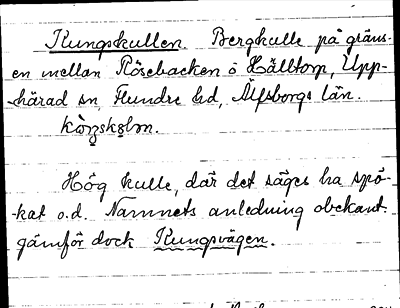 Kungskullen. Bergkulle på gräns-
en mellan Rösebacken o Hälltorp, Upp-
härad sn, Flundre hd, Älfsborgs län.
Hög kulle, där det säges ha spö-
kat o.d. Namnets anledning obekant.
jämför dock Kungsvägen.